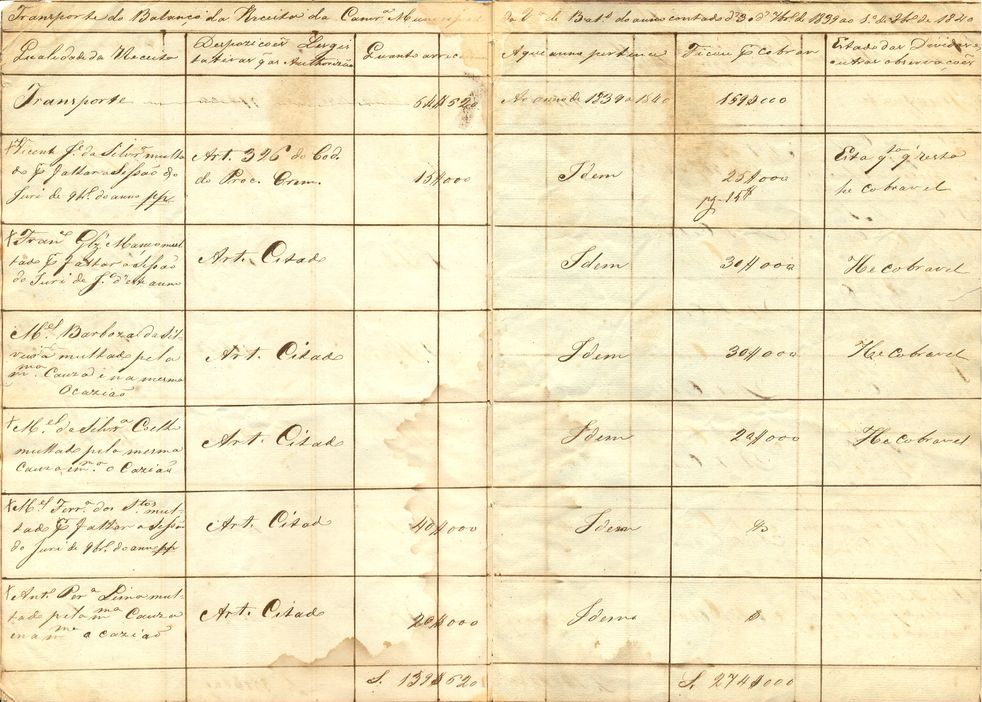 Transporte do Balanço da Receita da Camrª Municipal da Vª de Batˢ do anno contado d'3 d' 7brº de 1839 ao 1º de 7brº de 1840
Qualidade da Receita
Despozicoẽs Legis
lativas q̃ as Authorizão
Quanto arrec
A que anno pertence
Ficou p̃ cobrar
Estado das Dividas,
outras observacoẽs
Transporte
64$520
Ao anno de 1839 a 1840
159$000
Vicente Jᵉ da Silvrª multa
do p̃ faltar a Sessão do
Juri de 9brº do anno pp
Art. 326 do Cod.
do Proc. Crem.
15$000
Idem
25$000
pg. 15$
Esta qᵗᵃ q' resta
he cobravel
Franᶜᵒ Glz' mul
tado p̃ faltar a Sessão
do Juri de Jº d'este anno
Art. Citado
Idem
30$000
He cobravel
Mᵉˡ Barboza da Sil
veirª multado pela
mᵐᵃ Cauza e na mesma
Ocazião
Art. Citado
Idem
30$000
He cobravel
Mᵉˡ da Silvrª Coelh
multado pela mesma
Cauza e mᵐᵃ Ocazião
Art. Citado
Idem
20$000
He cobravel
Mᵉˡ Ferrª dos Stᵒˢ mul
tado p̃ faltar a Sessão
do Juri de 9brº do anno pp
Art. Citad
40$000
Idem
$
Antº Perª Lima mul
tado pela mᵐᵃ Cauza
e na mᵐᵃ ocazião
Art. Citado
20$000
Idem
$
S. 139$520
S. 274$000